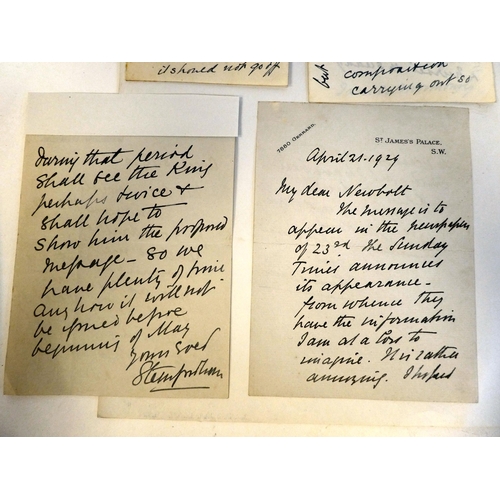 it should not go off
but
composition
carrying out so
during that period
Shall see the King
perhaps twice &
Shall hope to
Show him the proposed
message - so we
have plenty of time
anyhow it will not
be issued before
beginning of May
Yours Ever
Stamfordham
7680 Gerrard.
St James's Palace,
S.W.
April 21 - 1929
My dear Newbolt
The message is to
appear in the newspapers
of 23rd The Sunday
Times announces
its appearance -
from whence they
have the information
I am at a loss to
imagine. It is rather
annoying. I